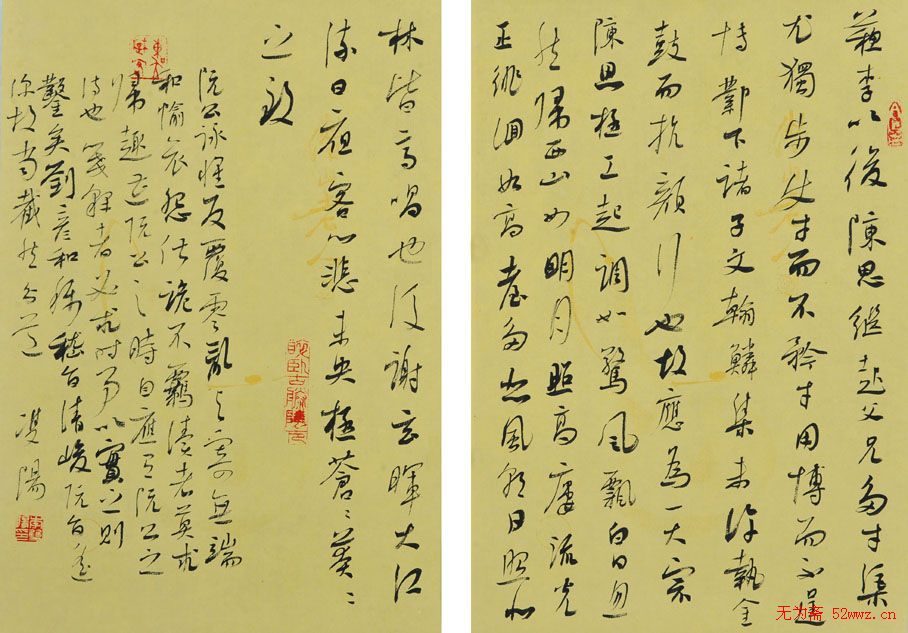 蘇李以後陳思繼起父兄多才渠
尤獨步使才而不矜才用博而不逞
博鄴下諸子文翰鱗集未許執金
鼓而抗顏行也故應為一大宗
陳思極工起調如驚風飄白日忽
然歸西山如明月照高樓流光
正徘徊如高臺多悲風朝日照北
林皆高唱也後謝玄暉大江
流日夜客心悲未央極蒼〻莽〻
之致
阮公詠懷反覆零亂興寄無端
和愉哀怨俶詭不羈讀者莫求
歸趣遭阮公之時自應有阮公之
詩也箋釋者必求時事以實之則
鑿矣劉彥和稱嵇旨清峻阮旨遙
深故當截然分道 陽
无为斋 52wwz.cn